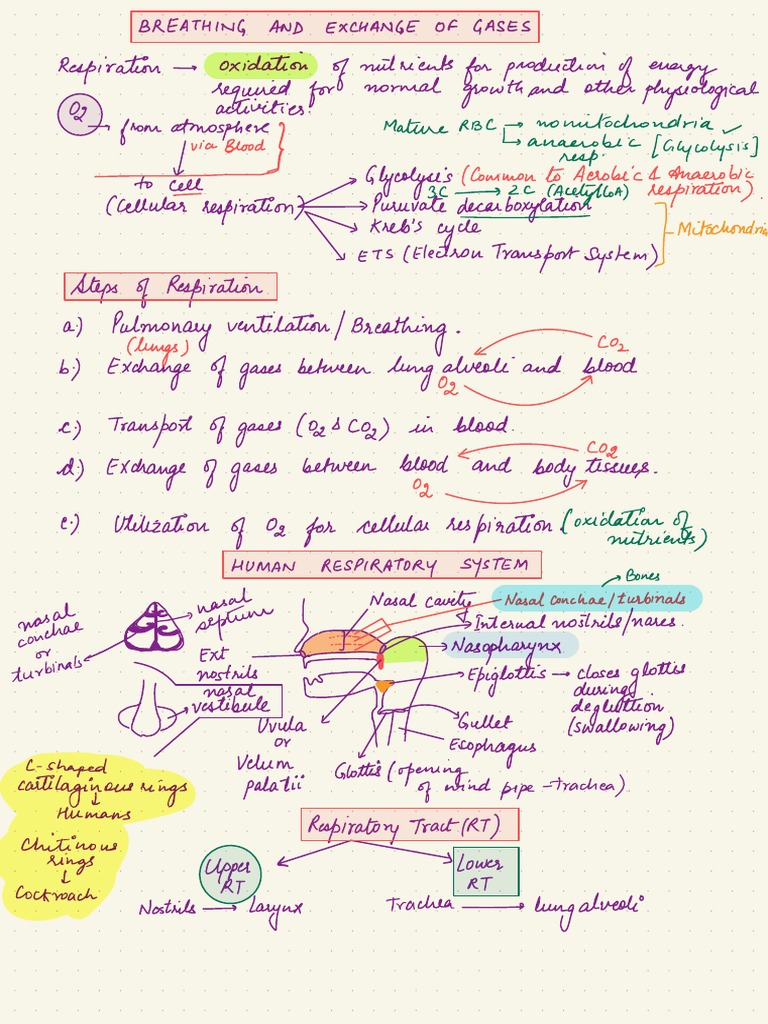 BREATHING AND EXCHANGE OF GASES
Respiration → oxidation of nutrients for production of energy
required for normal growth and other physiological
activities.
O2
→ from atmosphere
via Blood
to cell
(Cellular respiration)
Mature RBC → no mitochondria
→ anaerobic [Glycolysis]
resp.
Glycolysis (Common to Aerobic & Anaerobic
respiration).
3C → 2C (Acetyl CoA)
Puruvate decarboxylation
Kreb's cycle
ETS (Electron Transport System)
Mitochondria
Steps of Respiration
a.) Pulmonary ventilation/Breathing.
(lungs)
b.) Exchange of gases between lung alveoli and blood
CO2
O2
c.) Transport of gases (O2 & CO2) in blood.
d.) Exchange of gases between blood and body tissues.
CO2
O2
e.) Utilization of O2 for cellular respiration. (oxidation of
nutrients)
HUMAN RESPIRATORY SYSTEM
Bones
nasal
conchae
or
turbinals
nasal
septum
Nasal cavity
Nasal conchae/turbinals
Internal nostrils/nares.
Nasopharynx
Ext
nostrils
nasal
vestibule
Epiglottis → closes glottis
during
deglution
(swallowing)
Uvula
or
Velum
palatii
Gullet
Esophagus
Glottis (opening
of wind pipe - Trachea)
C-shaped
cartilaginous rings
↓
Humans
Chitinous
rings
↓
Cockroach
Respiratory Tract (RT)
Upper
RT
Lower
RT
Nostrils → Larynx
Trachea → lung alveoli